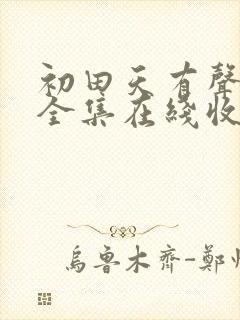 初田天有聲
全集在綫收
烏魯木齊-鄭州